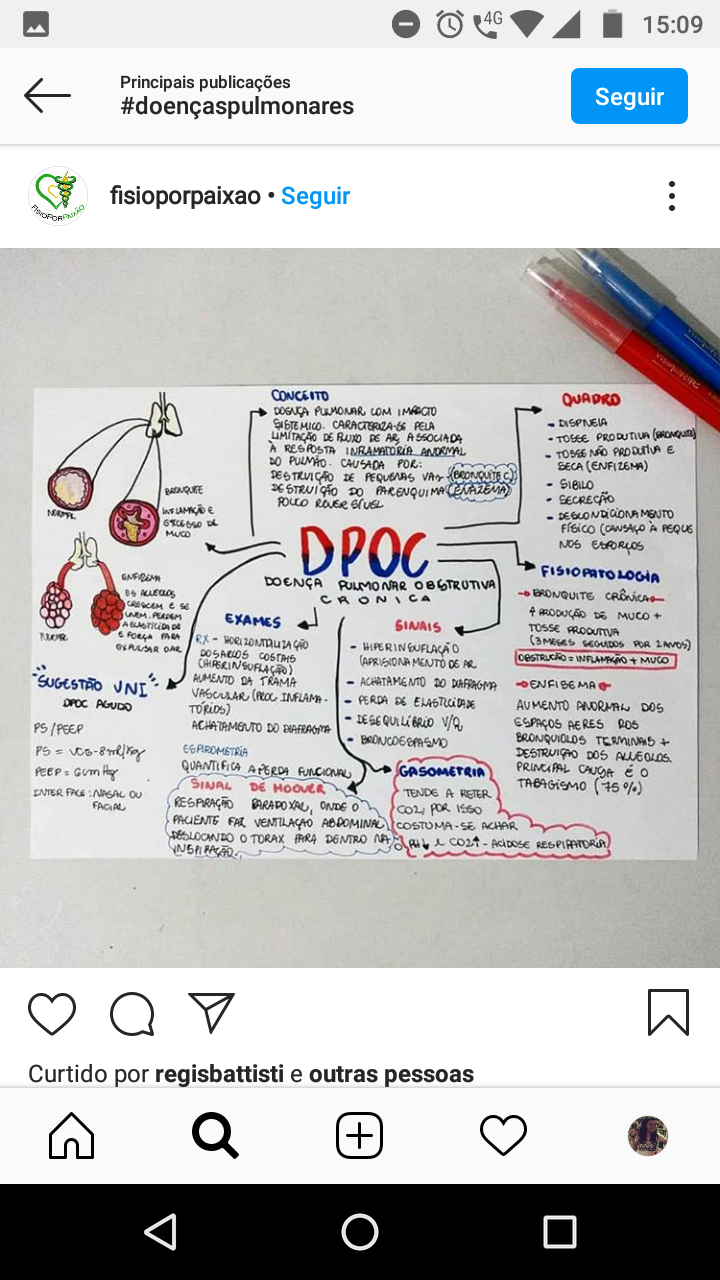 4G 15:09
Principais publicações
#doençaspulmonares
Seguir
FISIOPORPAIXÃO
fisioporpaixao • Seguir
CONCEITO
DOENÇA PULMONAR COM IMPACTO
SISTEMICO. CARACTERIZA-SE PELA
LIMITAÇÃO DE FLUXO DE AR, ASSOCIADA
À RESPOSTA INFLAMATÓRIA ANORMAL
DO PULMÃO. CAUSADA POR:
DESTRUIÇÃO DE PEQUENAS VAS (BRONQUITE C)
DESTRUIÇÃO DO PARENQUIMA
POUCO REVERSÍVEL
QUADRO
- DISPNEIA
- TOSSE PRODUTIVA (BRONQUITE)
- TOSSE NÃO PRODUTIVA E
SECA (ENFIZEMA)
- SIBILO
- SECREÇÃO
- DESCONDICIONAMENTO
FÍSICO (CANSAÇO À PEQUE
NOS ESFORÇOS
NORMAL
BRONQUITE
INFLAMAÇÃO E
EXCESSO DE
MUCO
NORMAL
ENFIZEMA
OS ALVEOLOS
CRESCEM E SE
UNEM. PERDEM
A ELASTICIDADE
E FORÇA PARA
EXPULSAR OAR
DPOC
DOENÇA PULMONAR OBSTRUTIVA
CRONICA
FISIOPATOLOGIA
BRONQUITE CRÔNICA
↑ PRODUÇÃO DE MUCO +
TOSSE PRODUTIVA
(3 MESES SEGUIDOS POR 2 ANOS)
OBSTRUÇÃO = INFLAMAÇÃO + MUCO
ENFISEMA
AUMENTO ANORMAL DOS
ESPAÇOS AERES NOS
BRONQUIOLOS TERMINAIS +
DESTRUIÇÃO DOS ALVEOLOS.
PRINCIPAL CAUSA É O
TABAGISMO (75%)
EXAMES
RX - HORIZONTALIZAÇÃO
DOS ARCOS COSTAIS
(HIPERINSUFLAÇÃO)
AUMENTO DA TRAMA
VASCULAR (PROC INFLAMA-
TÓRIOS)
ACHATAMENTO DO DIAFRAGMA
ESPIROMETRIA
QUANTIFICA A PERDA FUNCIONAL
SINAIS
- HIPERINSUFLAÇÃO
(APRISIONAMENTO DE AR
- ACHATAMENTO DO DIAFRAGMA
- PERDA DE ELASTICIDADE
- DESEQUILÍBRIO V/Q
- BRONCOESPASMO
"SUGESTÃO VNI"
DPOC AGUDO
PS/PEEP
PS = VC 5-8ml/kg
PEEP = 6cmHg
INTERFACE: NASAL OU
FACIAL
SINAL DE HOOVER
RESPIRAÇÃO PARADOXAL, ONDE O
PACIENTE FAZ VENTILAÇÃO ABDOMINAL,
DESLOCANDO O TORAX PARA DENTRO NA
INSPIRAÇÃO.
GASOMETRIA
TENDE A RETER
CO2, POR ISSO
COSTUMA-SE ACHAR
O PH↓ E CO2↑ - ACIDOSE RESPIRATORIA
Curtido por regisbattisti e outras pessoas